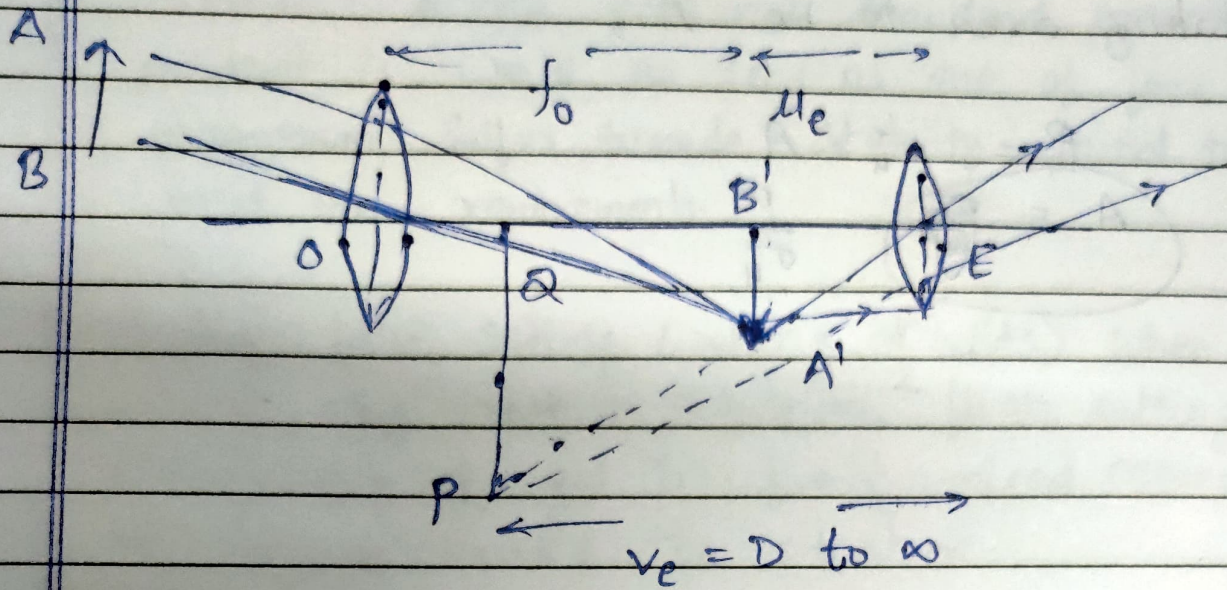 A
f₀ uₑ
B B'
O Q E
A'
P
vₑ = D to ∞